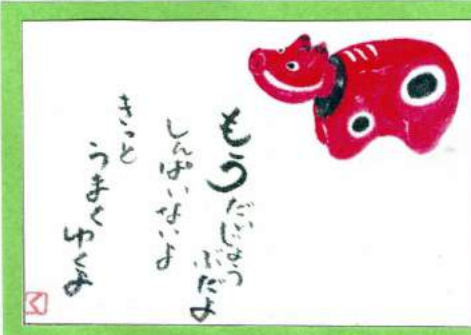 もう
だいじょう
ぶだよ
しんぱいないよ
きっと
うまく
ゆくよ
く